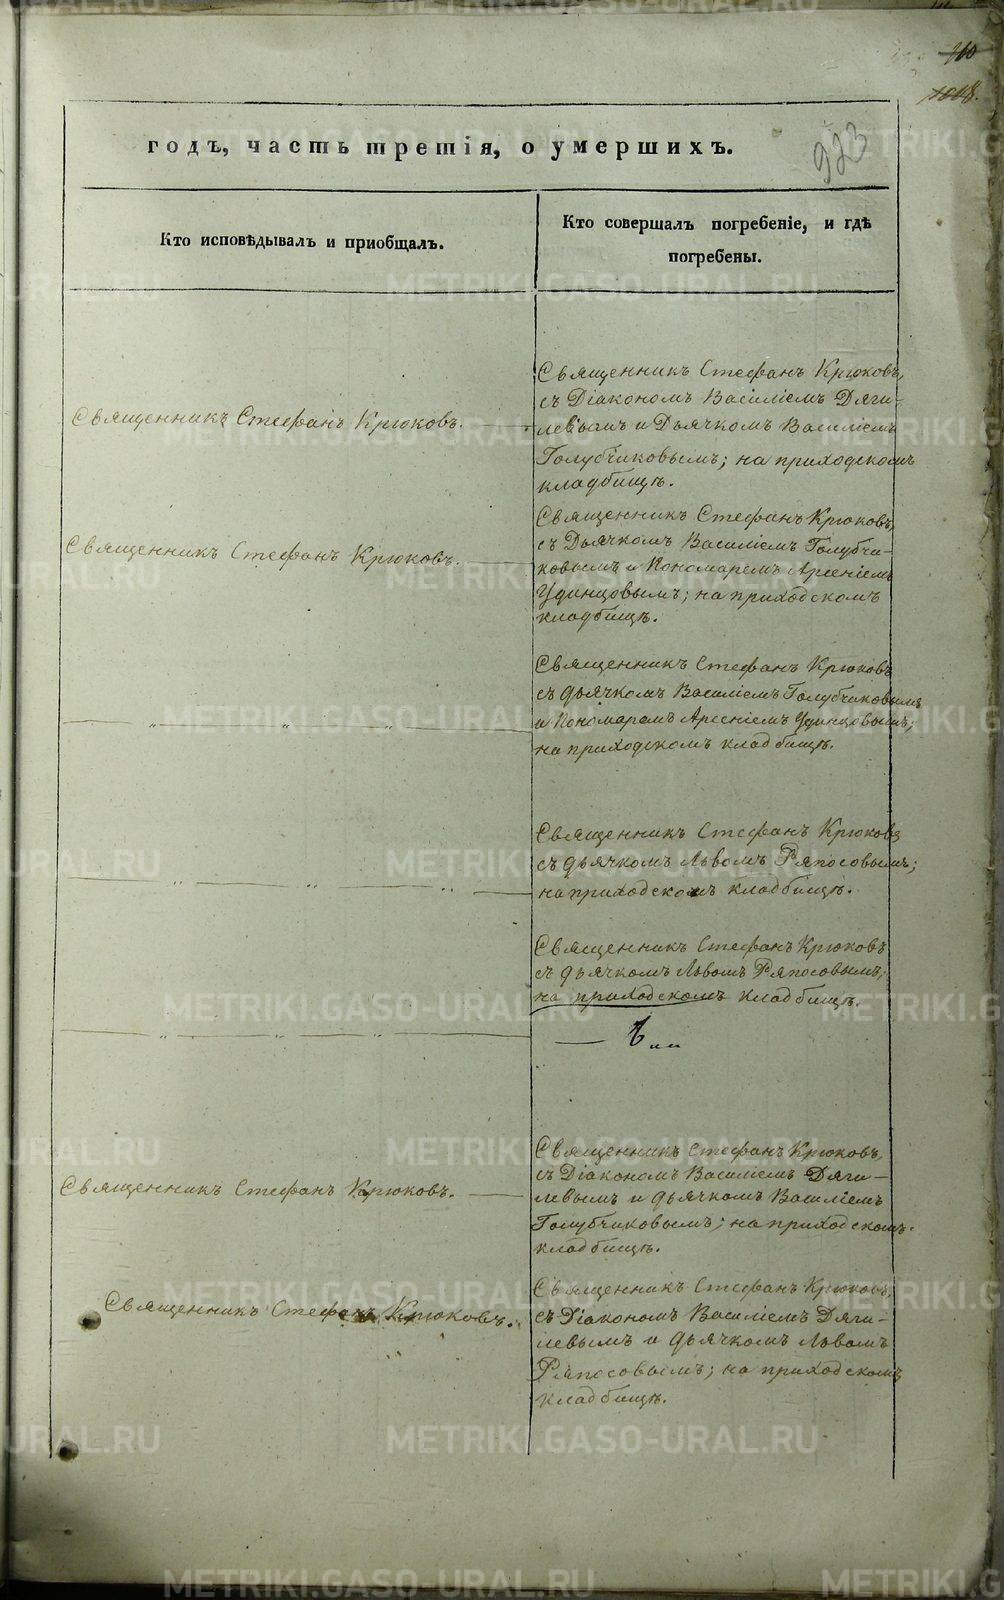 310
1008.
923
годъ, часть третія, о умершихъ.
Кто исповѣдывалъ и приобщалъ.
Кто совершалъ погребеніе, и гдѣ
погребены.
Священникъ Стефанъ Крюковъ.
Священникъ Стефанъ Крюковъ,
съ Діакономъ Василіемъ Дяги-
левымъ и Дьячкомъ Василіемъ
Голубчиковымъ; на приходскомъ
кладбищѣ.
Священникъ Стефанъ Крюковъ.
Священникъ Стефанъ Крюковъ,
съ Дьячкомъ Василіемъ Голубчи-
ковымъ и Пономаремъ Арсеніемъ
Удинцовымъ; на приходскомъ
кладбищѣ.
„ „ „
Священникъ Стефанъ Крюковъ
съ дьячкомъ Василіемъ Голубчиковымъ
и Пономаремъ Арсеніемъ Удинцовымъ;
на приходскомъ кладбищѣ.
„ „ „
Священникъ Стефанъ Крюковъ
съ дьячкомъ Львомъ Ряпосовымъ;
на приходскомъ кладбищѣ.
„ „ „
Священникъ Стефанъ Крюковъ
съ дьячкомъ Львомъ Ряпосовымъ;
на приходскомъ кладбищѣ.
Священникъ Стефанъ Крюковъ.
Священникъ Стефанъ Крюковъ,
съ Діакономъ Василіемъ Дяги-
левымъ и дьячкомъ Василіемъ
Голубчиковымъ; на приходскомъ
кладбищѣ.
Священникъ Стефанъ Крюковъ.
Священникъ Стефанъ Крюковъ,
съ Діакономъ Василіемъ Дяги-
левымъ и дьячкомъ Львомъ
Ряпосовымъ; на приходскомъ
кладбищѣ.
METRIKI.GASO-URAL.RU